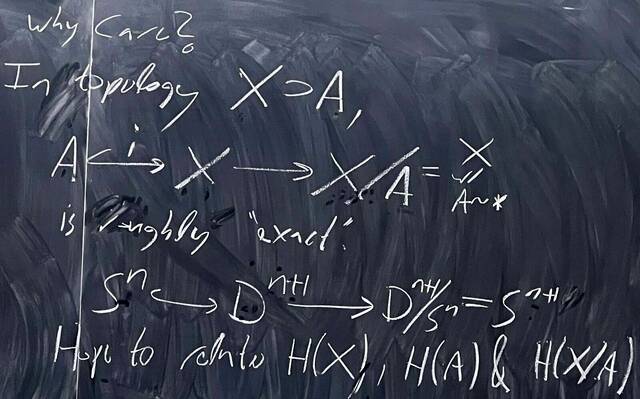 Why Care?
In topology X ⊃ A,
A ↪ⁱ X → X/A = X w/ A~*
is roughly "exact".
Sⁿ ↪ Dⁿ⁺¹ → Dⁿ⁺¹/Sⁿ = Sⁿ⁺¹
Hope to relate H(X), H(A) & H(X/A)